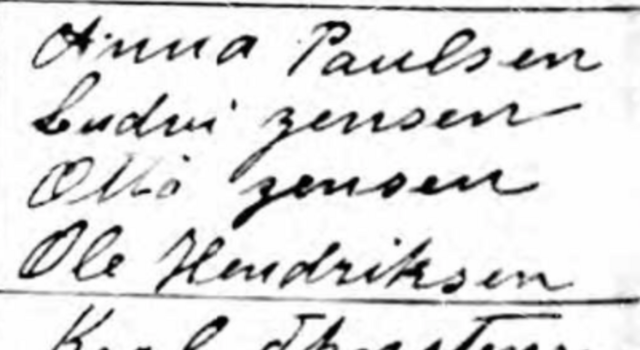 Anna Paulsen
Ludvi Jensen
Otto Jensen
Ole Hendriksen
Karl